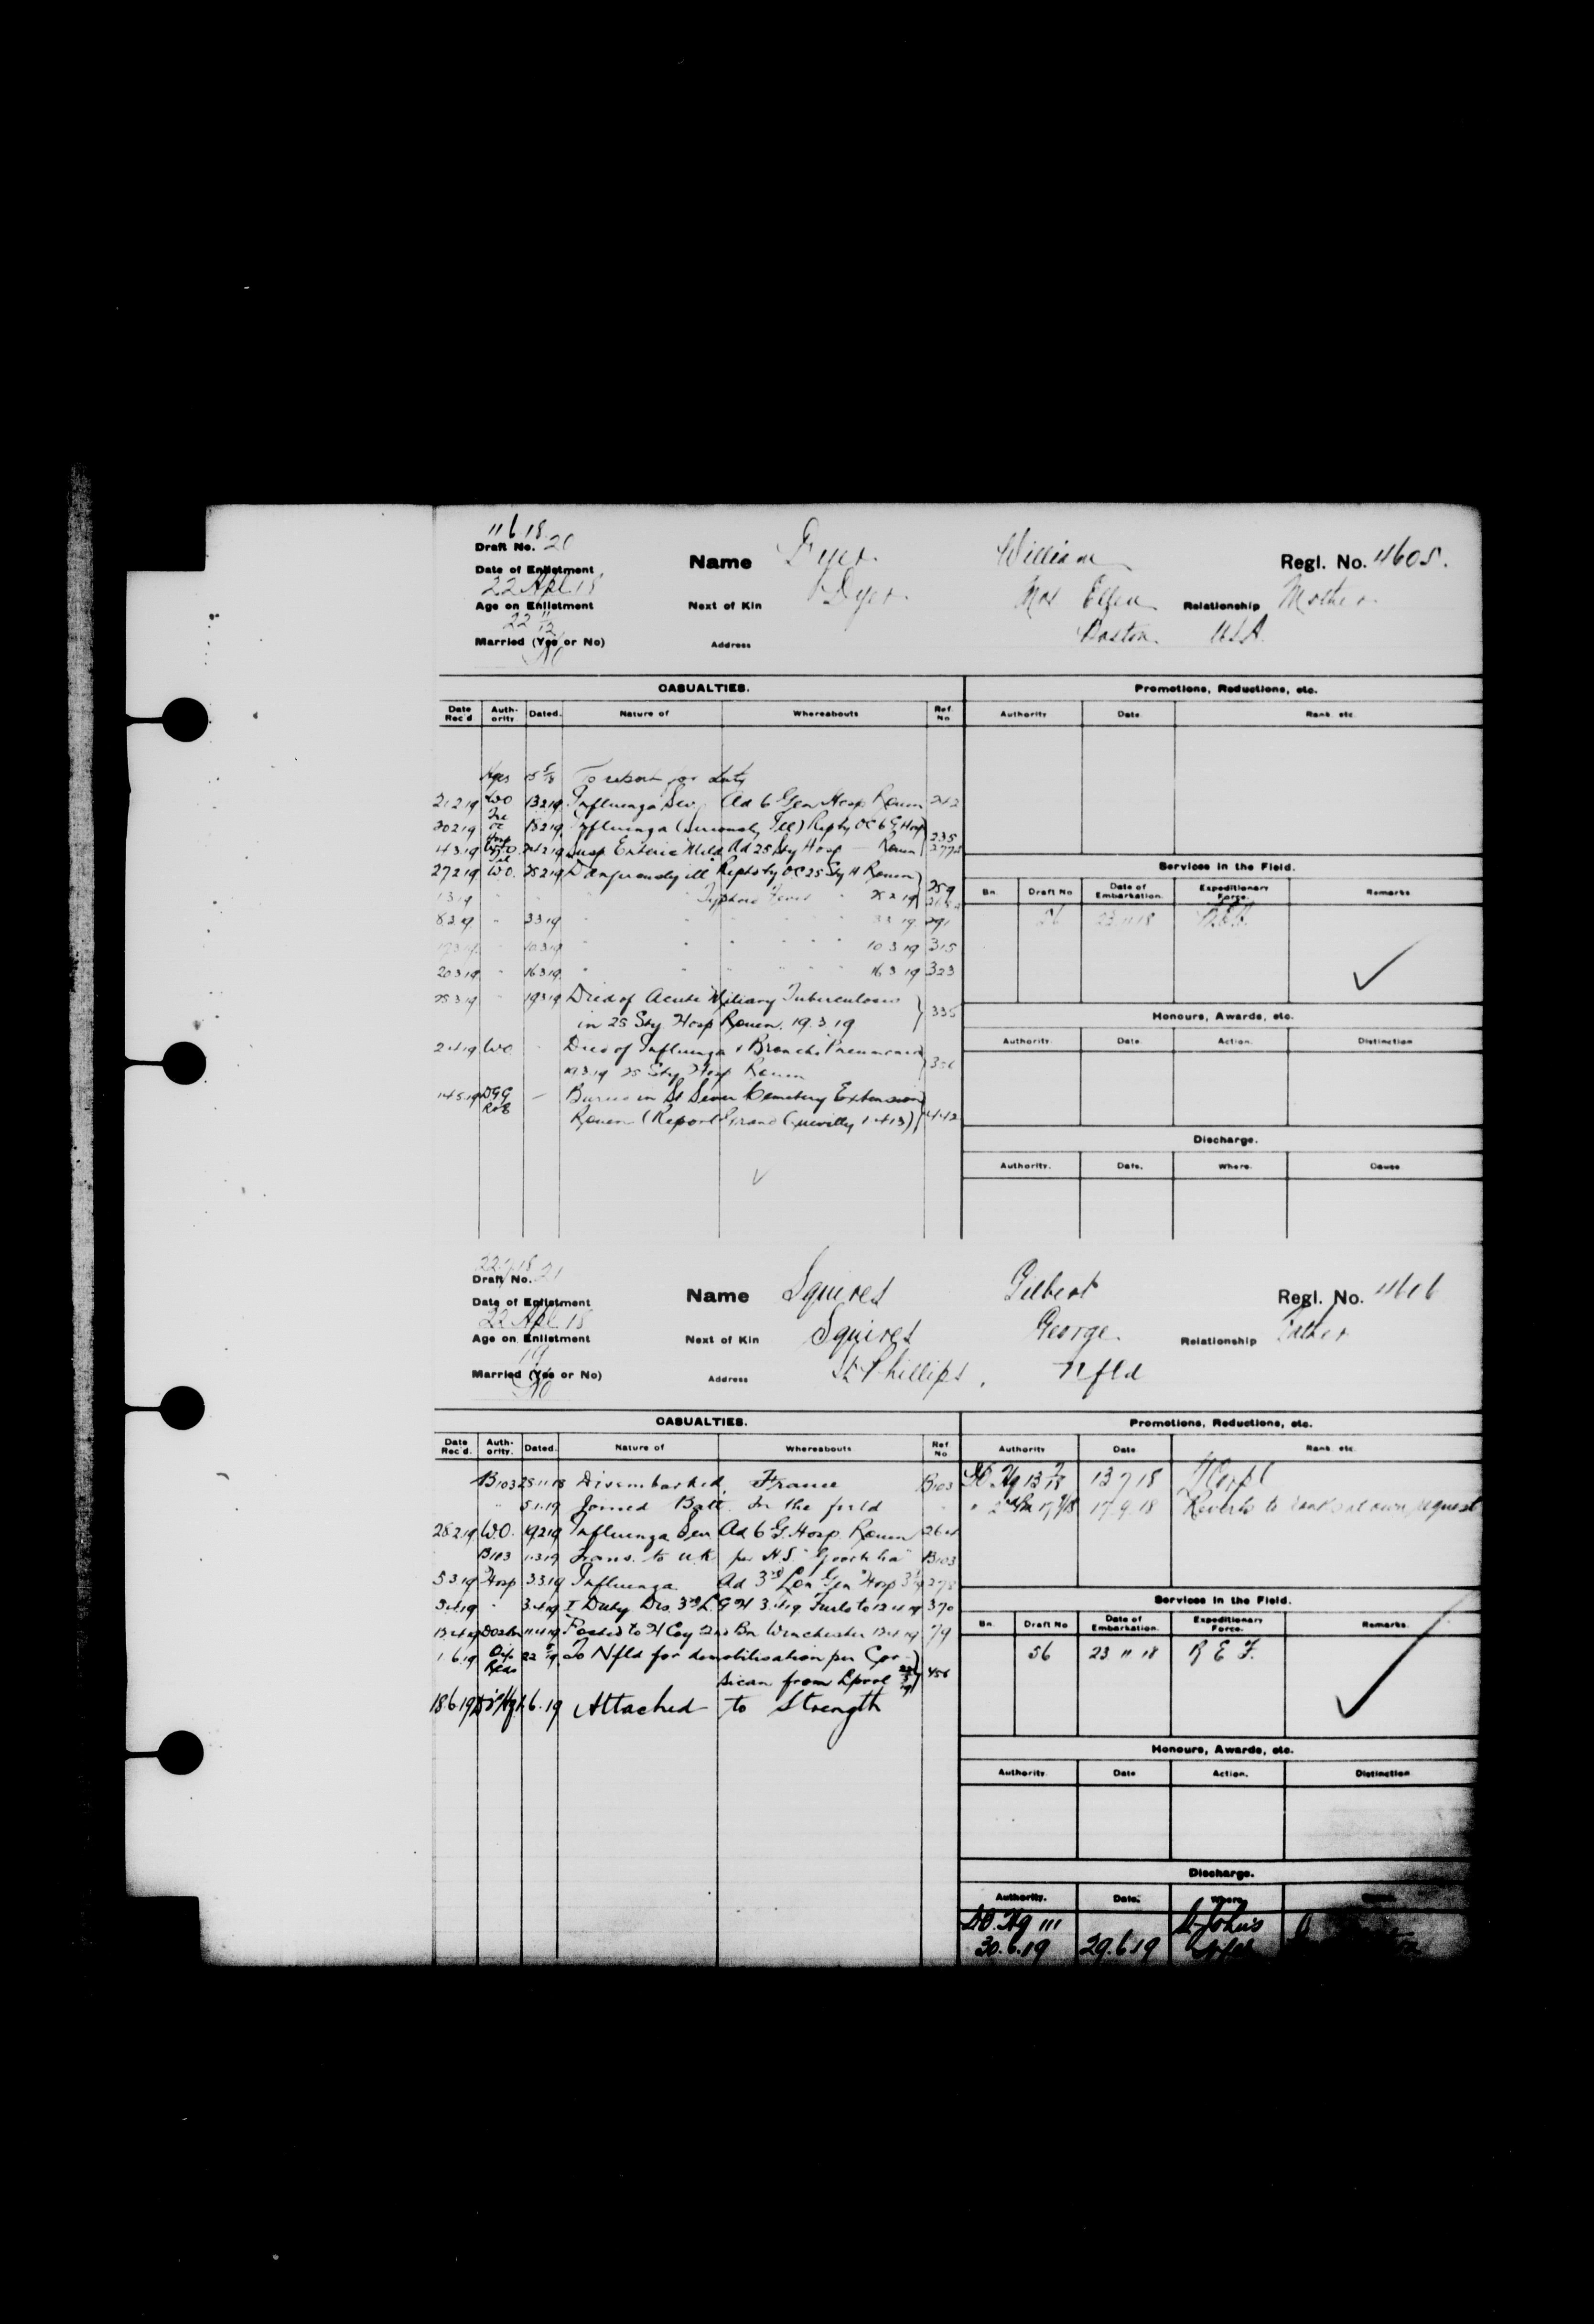 11 6 18
Draft No. 20
Name Dyer William Regl. No. 4605.
Date of Enlistment
22 Apl. 18
Next of Kin Dyer. Mrs Ellen Relationship Mother
Age on Enlistment
22 11/12
Address Boston. USA.
Married (Yes or No)
No
CASUALTIES.
Date Rec'd Auth-ority Dated. Nature of Whereabouts Ref. No
15 5/18 To report for duty
21 2 19 WO 13 2 19 Influenza Sev. Ad 6 Gen Hosp Rouen 242
20 2 19 18 2 19 Influenza (Seriously Ill) Rep by OC 6 G Hosp 235
4 3 19 24 2 19 Susp Enteric Mild Ad 25 Sty Hosp — Rouen 277
27 2 19 W.O. 25 2 19 Dangerously ill Rept by OC 25 Sty H Rouen 259
1 3 19 " Typhoid Fever " 28 2 19
8 3 19 " 3 3 19 " " " 3 3 19 291
" 10 3 19 " " " 10 3 19 315
20 3 19 " 16 3 19 " " " 16 3 19 323
25 3 19 " 19 3 19 Died of Acute Miliary Tuberculosis
in 25 Sty. Hosp Rouen. 19.3.19 335
2 4 19 WO Died of Influenza & Broncho Pneumonia
19 3 19 25 Sty Hosp Rouen
14 5 19 DGG R&E — Buried in St Sever Cemetery Extension
Rouen (Report Grand Quevilly 1413) 442
Promotions, Reductions, etc.
Authority Date Rank etc.
Services in the Field.
Bn. Draft No Date of Embarkation. Expeditionary Force. Remarks
26 23 11 18 B.E.F.
Honours, Awards, etc.
Authority. Date. Action. Distinction
Discharge.
Authority. Date. Where. Cause
Draft No. 21
Name Squires Gilbert Regl. No. 4606
Date of Enlistment
22 Apl. 18
Next of Kin Squires George. Relationship Father
Age on Enlistment
19
Address St Phillips, Nfld
Married (Yes or No)
No
CASUALTIES.
Date Rec'd. Auth-ority. Dated. Nature of Whereabouts Ref. No
B103 25 11 18 Disembarked, France B103
" 5.1.19 Joined Batt. In the field
28 2 19 W.O. 19 2 19 Influenza Sev Ad 6 G. Hosp. Rouen 264
B103 1 3 19 Trans. to UK per H.S. "Goorkha" B103
5 3 19 Hosp 3 3 19 Influenza Ad 3rd Lon Gen Hosp 278
3 4 19 " 3 4 19 I Duty Dis. 3rd L G H 3.4.19. Furlo to 12 4 19 370
13 4 19 11 4 19 Posted to H Coy 2nd Bn Winchester 13 4 19 79
1.6.19 22 5/19 To Nfld for demobilisation per Cor-
sican from Lpool 22/5/19 456
18 6 19 1.6.19 Attached to Strength
Promotions, Reductions, etc.
Authority Date Rank etc.
13 7/18 13 7 18 L/Corpl
" 2nd Bn 17 9/18 17.9.18 Reverts to ranks at own request
Services in the Field.
Bn. Draft No Date of Embarkation. Expeditionary Force. Remarks.
56 23 11 18 B E F.
Honours, Awards, etc.
Authority. Date Action. Distinction
Discharge.
Authority. Date. Where
DO. Hq 111 St. Johns
30.6.19 29.6.19 Nfld